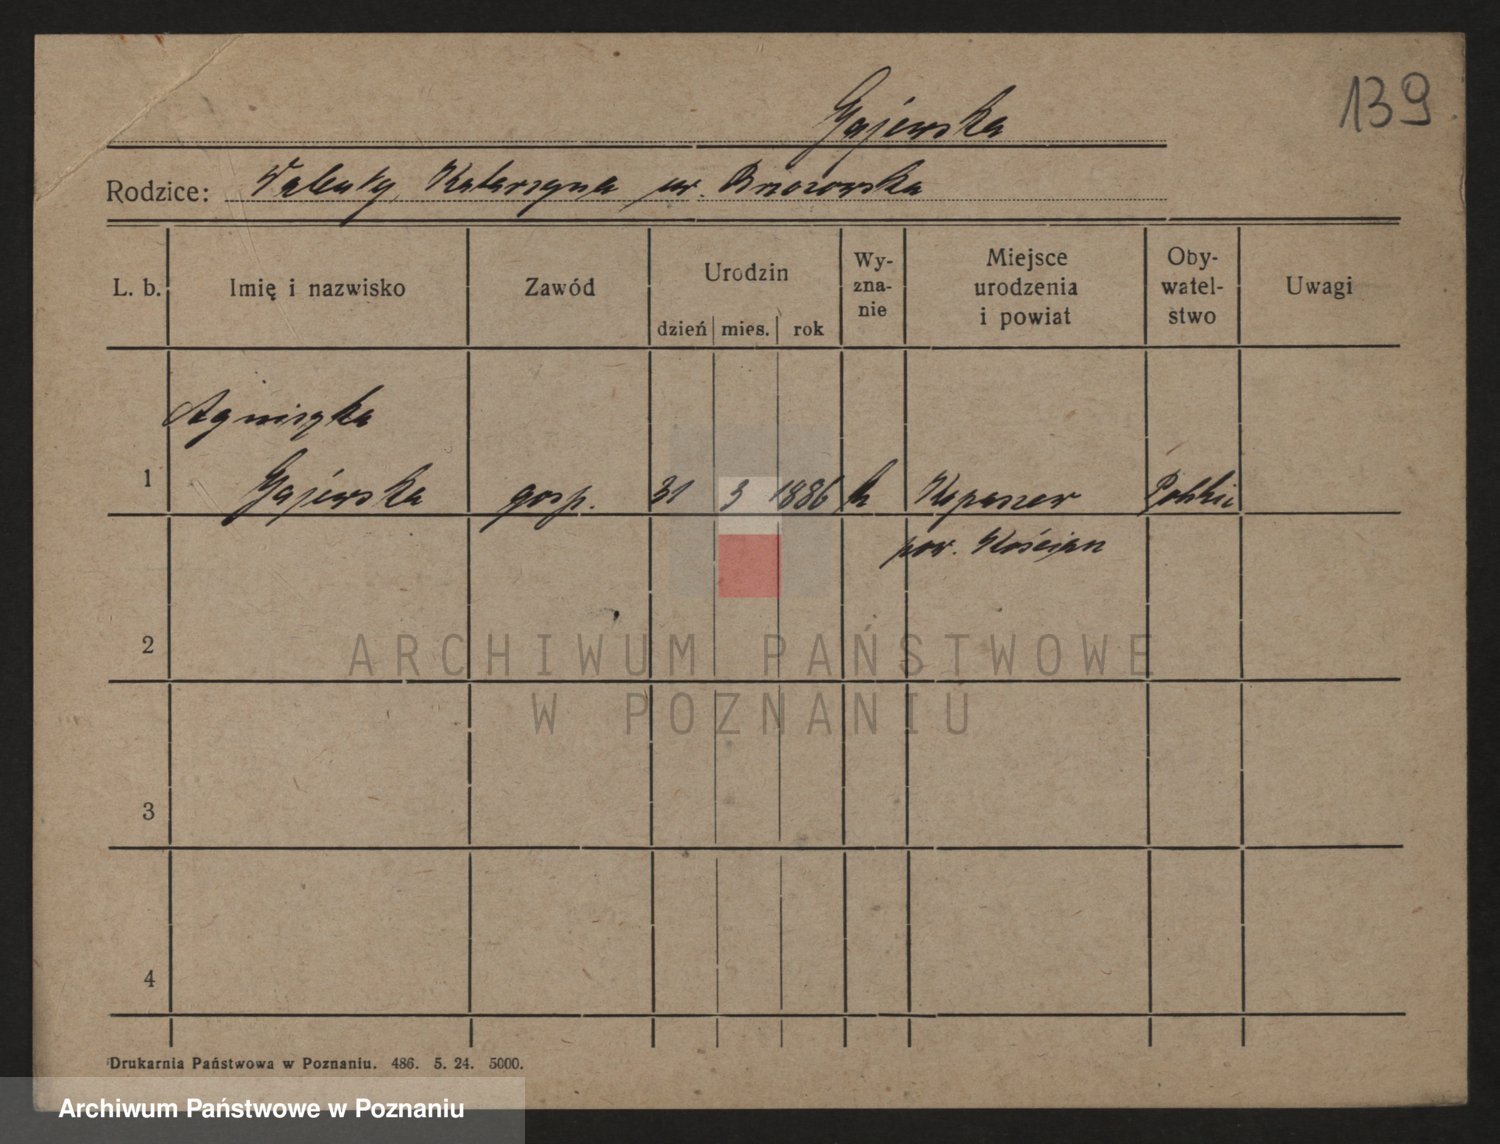 139
Gajewska
Rodzice: Walenty, Katarzyna ur. Brzozowska
L. b. Imię i nazwisko Zawód Urodzin dzień mies. rok Wy-zna-nie Miejsce urodzenia i powiat Oby-watel-stwo Uwagi
Agnieszka
1 Gajewska gosp. 31 3 1886 k Kopaszew Polskie
pow. Kościan
2
3
4
ARCHIWUM PAŃSTWOWE
W POZNANIU
Drukarnia Państwowa w Poznaniu. 486. 5. 24. 5000.
Archiwum Państwowe w Poznaniu